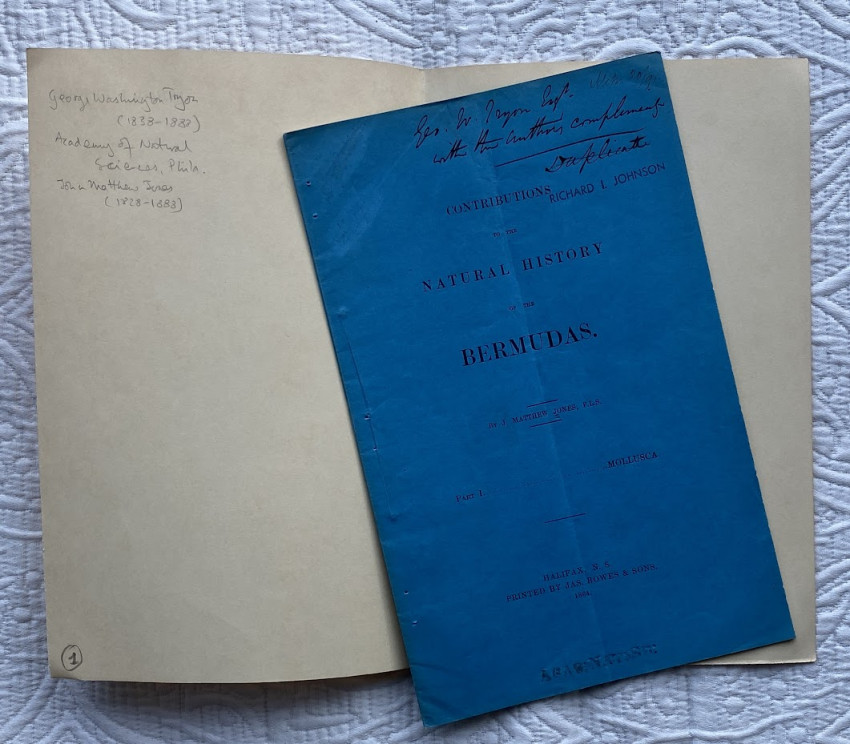 George Washington Tryon
(1838-1888)
Academy of Natural
Sciences, Phila.
John Matthew Jones
(1828-1888)
1
Geo. W. Tryon Esqr.
with the authors complements
Duplicate
RICHARD I. JOHNSON
CONTRIBUTIONS
TO THE
NATURAL HISTORY
OF THE
BERMUDAS.
BY J. MATTHEW JONES, F.L.S.
PART I. MOLLUSCA
HALIFAX, N. S.
PRINTED BY JAS. BOWES & SONS,